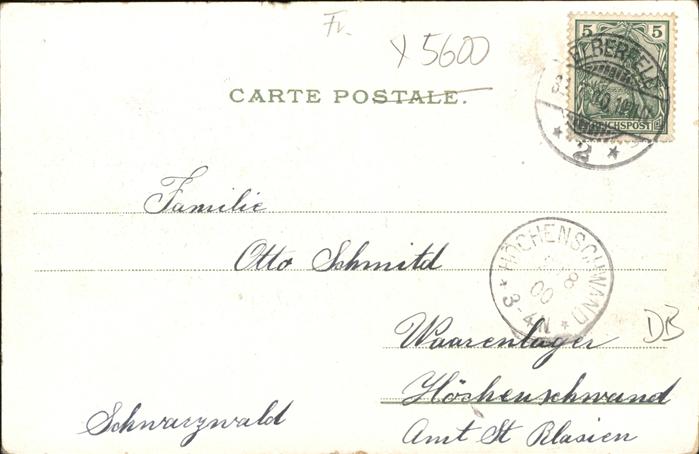 Fr.
x 5600
5 5
CARTE POSTALE.
ELBERFELD
REICHSPOST
* 2 *
Familie
Otto Schmitd
HÖCHENSCHWAND
8
00
* 3-4N *
DB
Waarenlager
Höchenschwand
Schwarzwald
Amt St Blasien